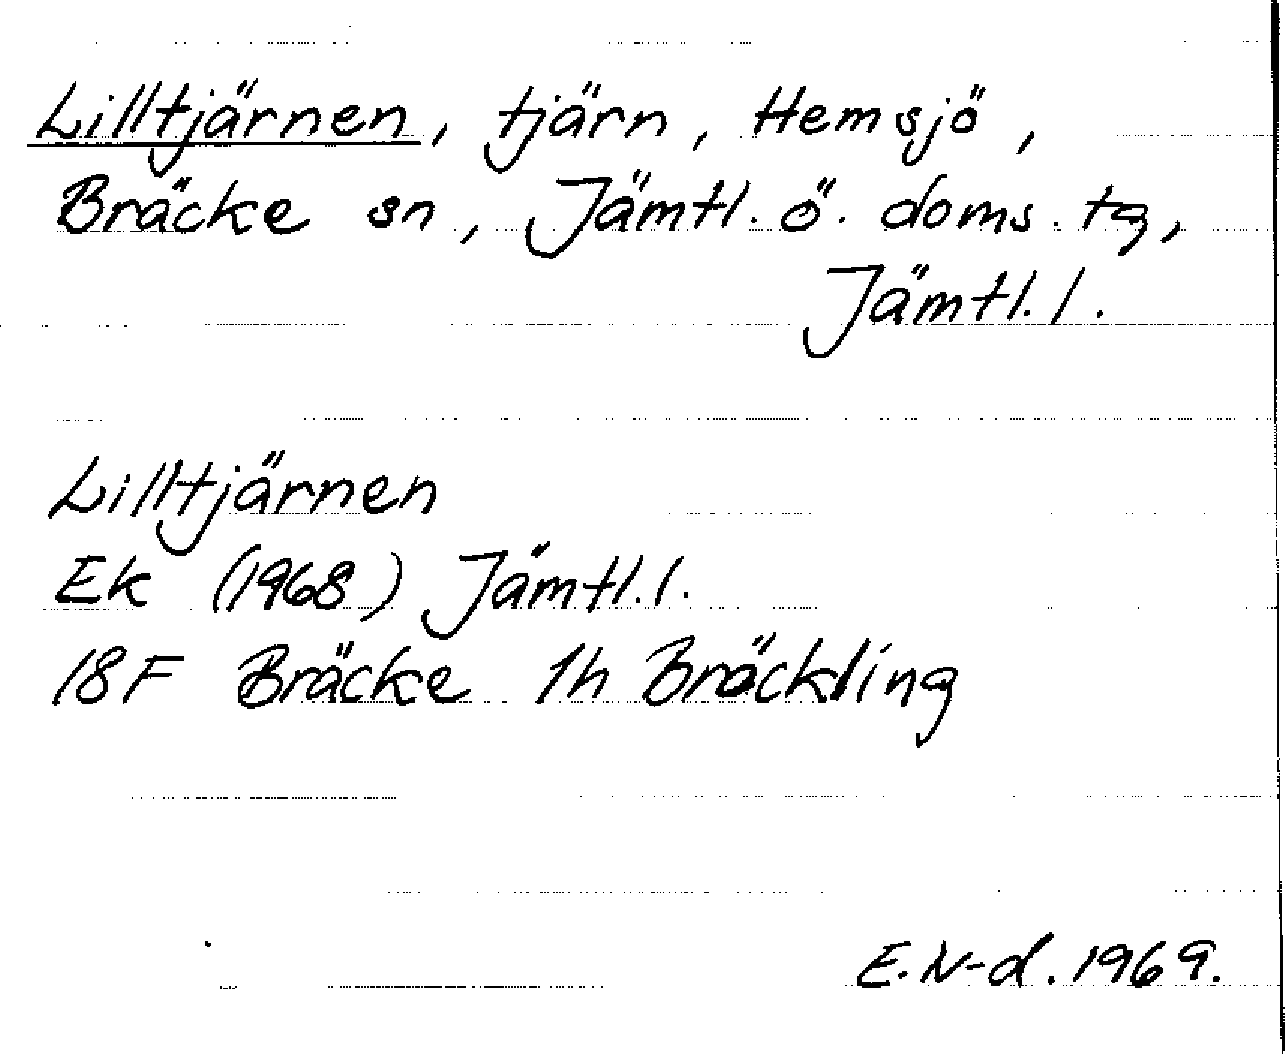 Lilltjärnen, tjärn, Hemsjö,
Bräcke sn, Jämtl. ö. doms. tg,
Jämtl. l.
Lilltjärnen
Ek (1968) Jämtl. l.
18F Bräcke 1h Bräckling
E. N-d. 1969.